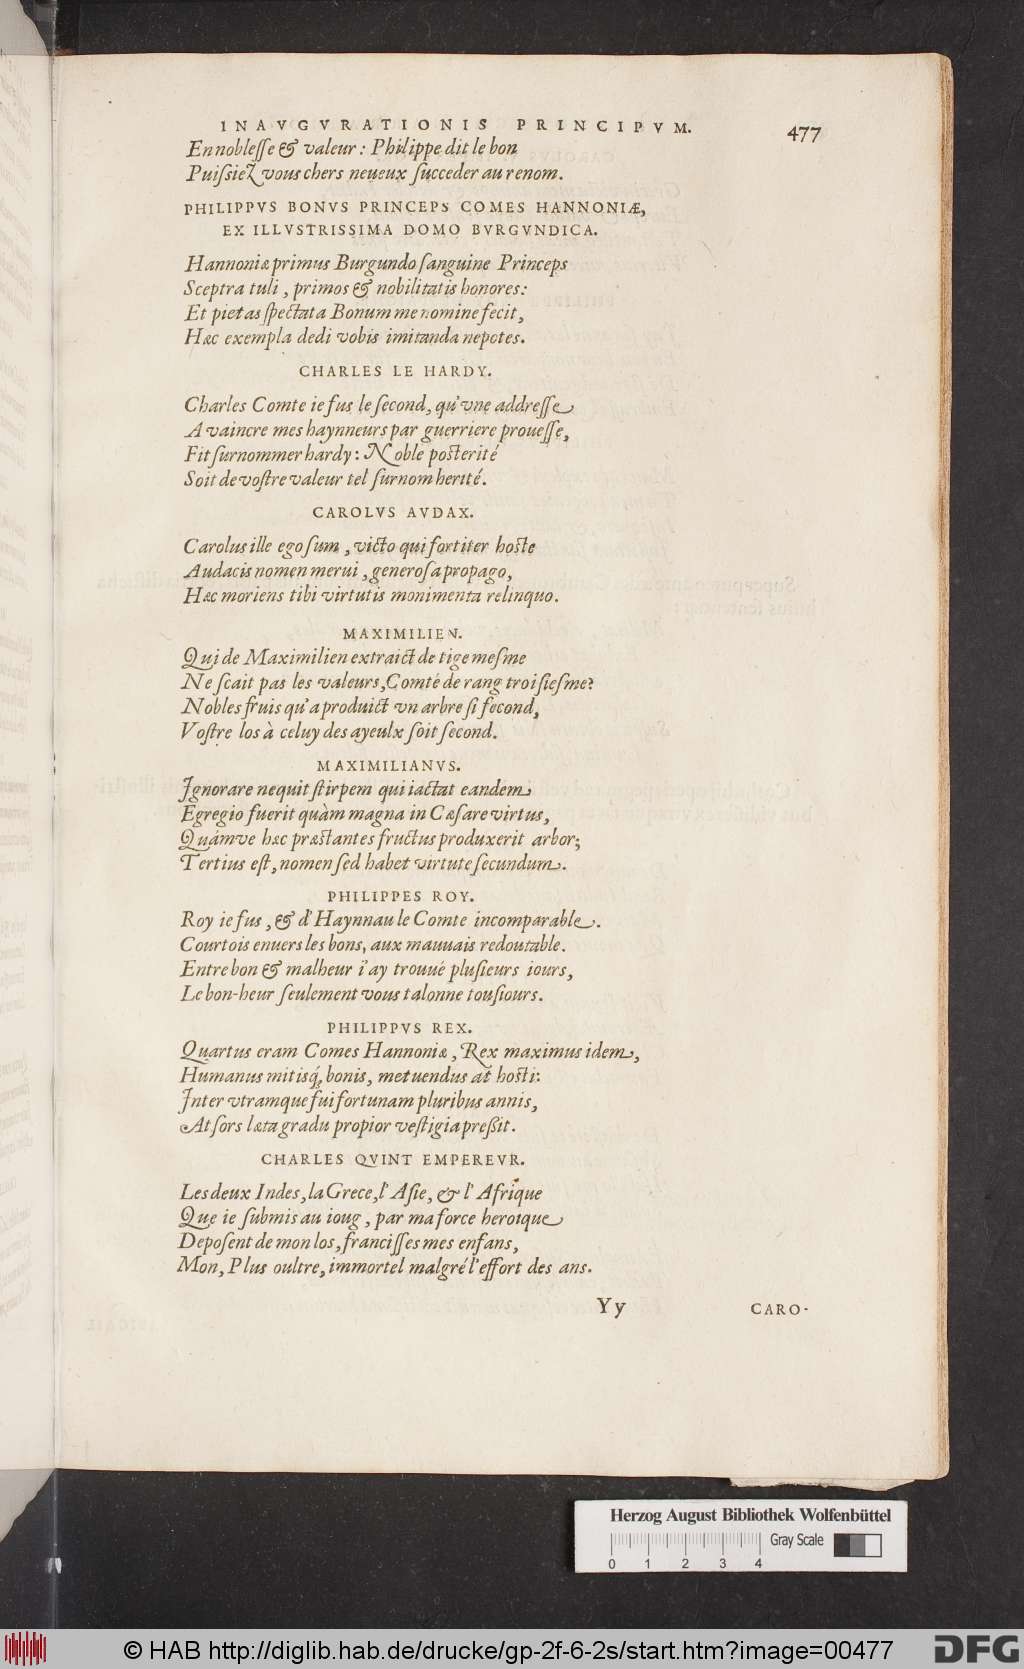 INAVGVRATIONIS PRINCIPVM. 477
En noblesse & valeur: Philippe dit le bon
Puissiez vous chers neueux succeder au renom.
PHILIPPVS BONVS PRINCEPS COMES HANNONIÆ,
EX ILLVSTRISSIMA DOMO BVRGVNDICA.
Hannoniæ primus Burgundo sanguine Princeps
Sceptra tuli, primos & nobilitatis honores:
Et pietas spectata Bonum me nomine fecit,
Hæc exempla dedi vobis imitanda nepotes.
CHARLES LE HARDY.
Charles Comte ie fus le second, qu'vne addresse
A vaincre mes haynneurs par guerriere prouesse,
Fit surnommer hardy: Noble posterité
Soit de vostre valeur tel surnom herité.
CAROLVS AVDAX.
Carolus ille ego sum, victo qui fortiter hoste
Audacis nomen merui, generosa propago,
Hæc moriens tibi virtutis monimenta relinquo.
MAXIMILIEN.
Qui de Maximilien extraict de tige mesme
Ne scait pas les valeurs, Comté de rang troisiesme?
Nobles fruis qu'a produict vn arbre si fecond,
Vostre los à celuy des ayeulx soit second.
MAXIMILIANVS.
Ignorare nequit stirpem qui iactat eandem
Egregio fuerit quàm magna in Cæsare virtus,
Quámve hæc præstantes fructus produxerit arbor;
Tertius est, nomen sed habet virtute secundum.
PHILIPPES ROY.
Roy ie fus, & d'Haynnau le Comte incomparable.
Courtois enuers les bons, aux mauuais redoutable.
Entre bon & malheur i'ay trouué plusieurs iours,
Le bon-heur seulement vous talonne tousiours.
PHILIPPVS REX.
Quartus eram Comes Hannoniæ, Rex maximus idem,
Humanus mitisq; bonis, metuendus at hosti:
Inter vtramque fui fortunam pluribus annis,
At sors læta gradu propior vestigia preßit.
CHARLES QVINT EMPEREVR.
Les deux Indes, la Grece, l'Asie, & l'Afrique
Que ie submis au ioug, par ma force heroique
Deposent de mon los, francisses mes enfans,
Mon, Plus oultre, immortel malgré l'effort des ans.
Yy CARO-
Herzog August Bibliothek Wolfenbüttel
Gray Scale
0 1 2 3 4
© HAB http://diglib.hab.de/drucke/gp-2f-6-2s/start.htm?image=00477 DFG